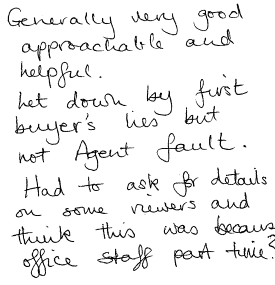 Generally very good
approachable and
helpful.
Let down by first
buyer's lies but
not Agent fault.
Had to ask for details
on some viewers and
think this was because
office staff part time?